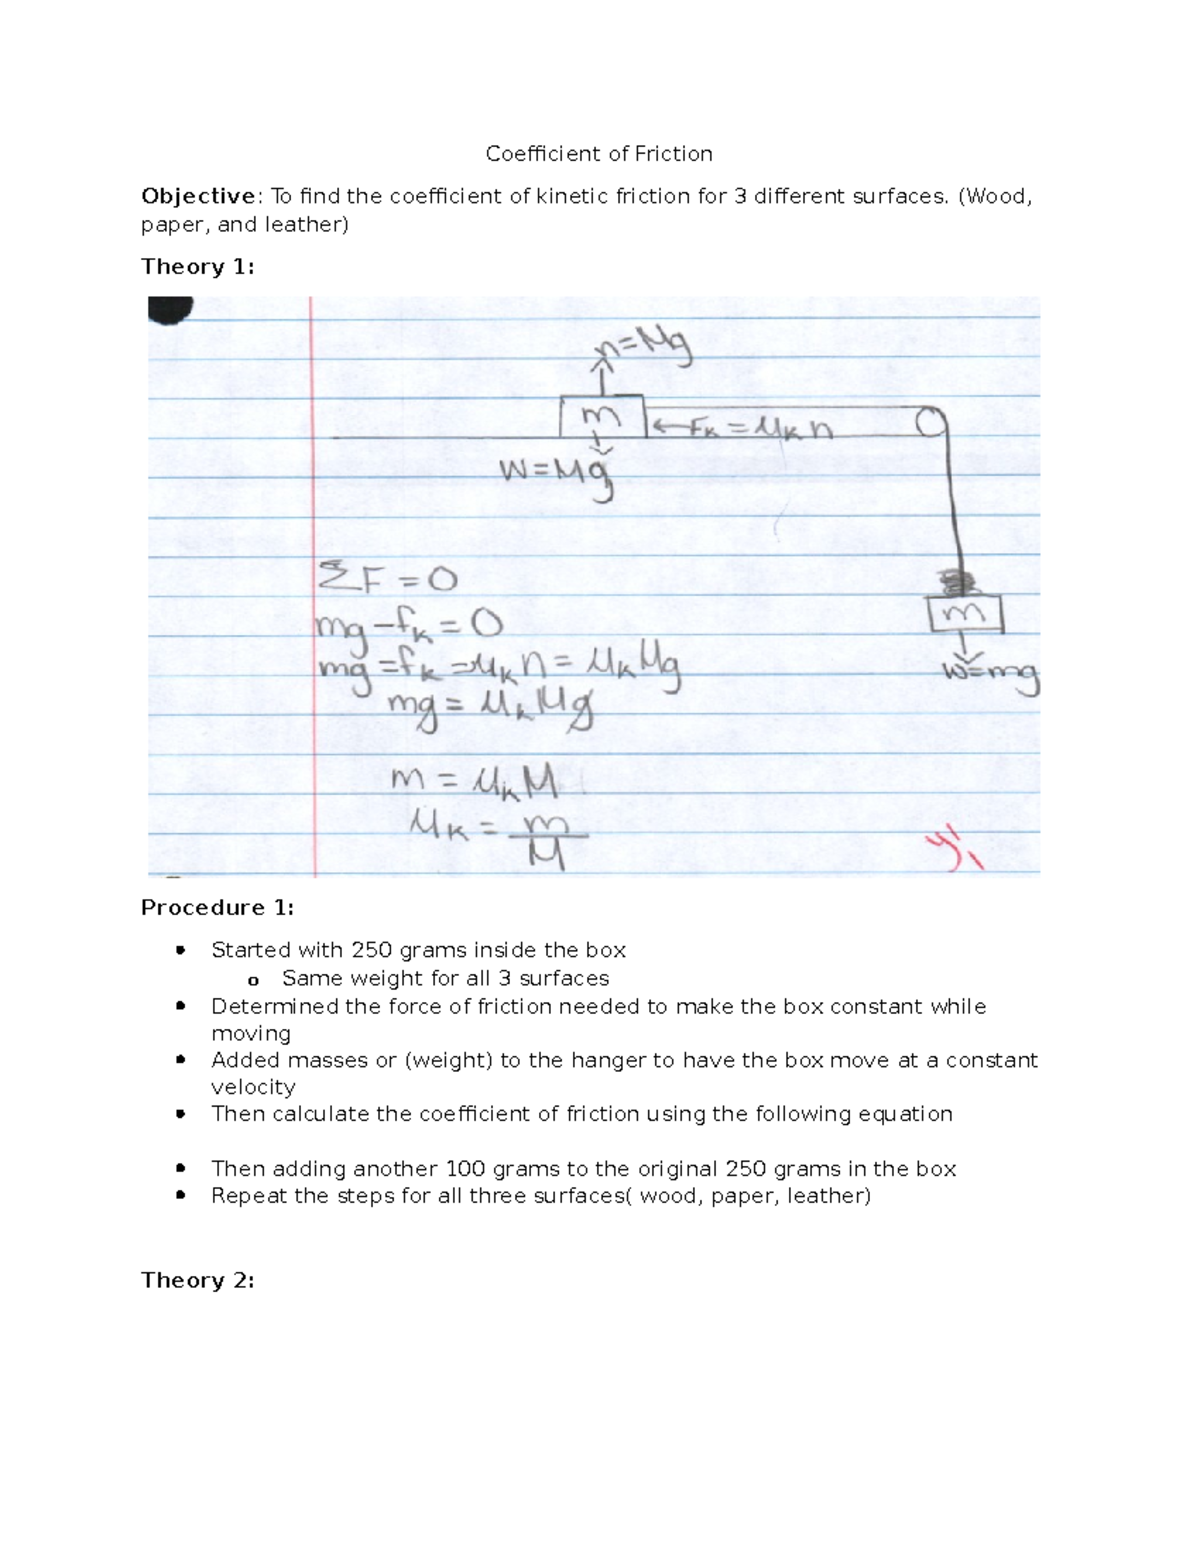 Coefficient of Friction
Objective: To find the coefficient of kinetic friction for 3 different surfaces. (Wood,
paper, and leather)
Theory 1:
n=Mg
m
←Fk = μk n
W=Mg
ΣF = 0
mg - fk = 0
m
mg = fk = μk n = μk Mg
w=mg
mg = μk Mg
m = μk M
μk = m/M
Procedure 1:
• Started with 250 grams inside the box
o Same weight for all 3 surfaces
• Determined the force of friction needed to make the box constant while
moving
• Added masses or (weight) to the hanger to have the box move at a constant
velocity
• Then calculate the coefficient of friction using the following equation
• Then adding another 100 grams to the original 250 grams in the box
• Repeat the steps for all three surfaces( wood, paper, leather)
Theory 2: